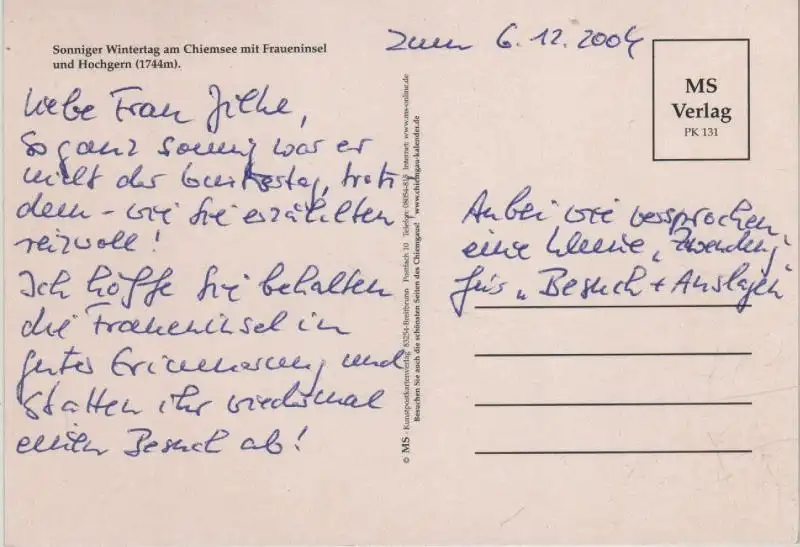 Sonniger Wintertag am Chiemsee mit Fraueninsel
und Hochgern (1744m).
zum 6.12.2004
Liebe Frau Jilke,
So ganz sonnig war er
nicht der
dem - wie Sie erzählten
reizvoll!
Ich hoffe Sie behalten
die Fraueninsel in
guter Erinnerung und
statten ihr wiedermal
einen Besuch ab!
© MS - Kunstpostkartenverlag 83254-Breitbrunn Postfach 10 Telefon 08054-815 Internet: www.ms-online.de
Besuchen Sie auch die schönsten Seiten des Chiemgaus! www.chiemgau-kalender.de
MS
Verlag
PK 131
Anbei wie versprochen
eine kleine „Zuwendung“
für „Besuch + Auslagen“